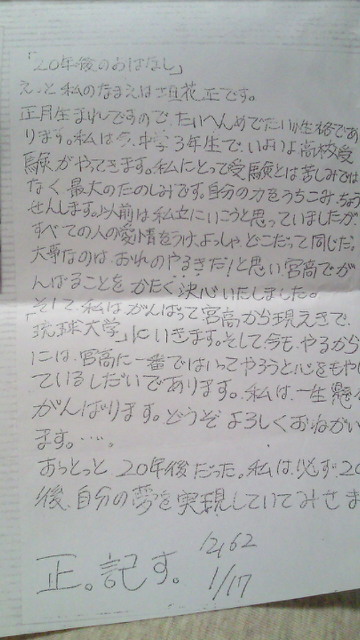 「20年後のおはなし」
えっと私のなまえは垣花正です。
正月生まれですので、たいへんめでたい性格であ
ります。私は今、中学3年生で、いよいよ高校受
験がやってきます。私にとって受験とは苦しみでは
なく最大のたのしみです。自分の力をうちこみ、ちょう
せんします。以前は私立にいこうと思っていましたが
すべての人の愛情をうけ、よっしゃどこだって同じだ。
大事なのは、おれのやるきだ!と思い宮高でが
んばることをかたく決心いたしました。
そして、私はがんばって宮高から現えきで、
「琉球大学」にいきます。そして今も、やるから
には、宮高に一番ではいってやろうと心をもや
ているしだいであります。私は、一生懸
がんばります。どうぞよろしくおねがい
ます。・・・。
あっとっと20年後だった。私は、必ず20
後、自分の夢を実現していてみさま
正。記す。
1/17